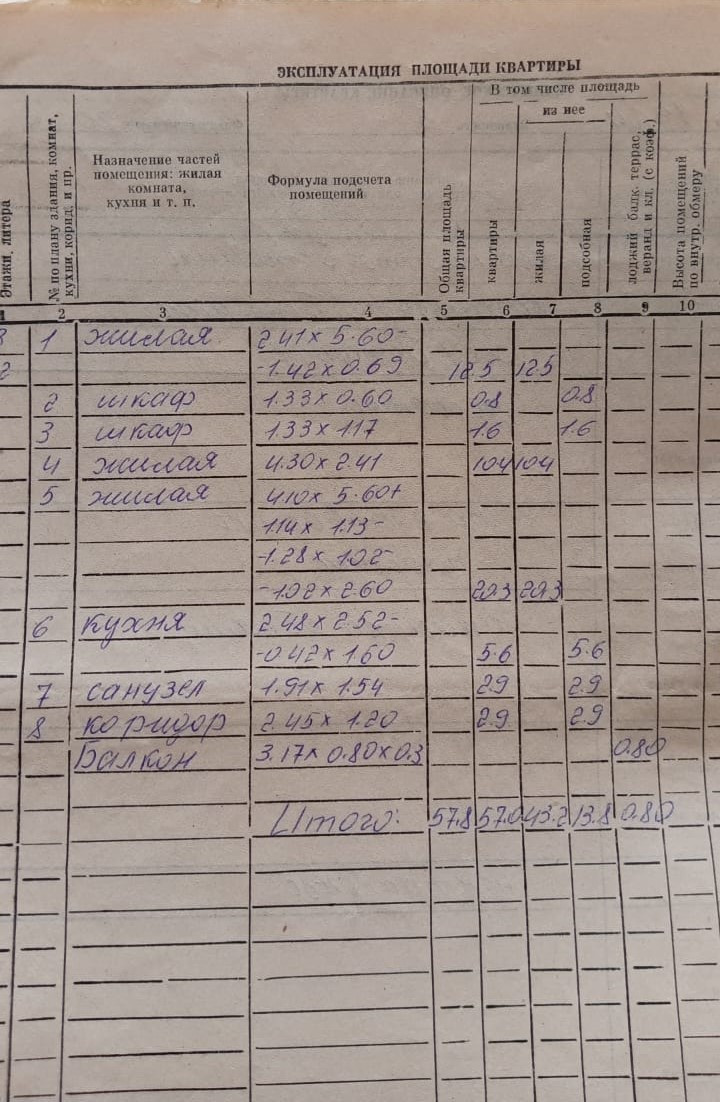 ЭКСПЛУАТАЦИЯ ПЛОЩАДИ КВАРТИРЫ
Этажи, литера
№ по плану здания, комнат, кухни, корид. и пр.
Назначение частей помещения: жилая комната, кухня и т. п.
Формула подсчета помещений
Общая площадь квартиры
В том числе площадь
из нее
квартиры
жилая
подсобная
лоджий балк. террас, веранд и кл. (с коэф.)
Высота помещений по внутр. обмеру
1 2 3 4 5 6 7 8 9 10
1 жилая 2.41 x 5.60-
2 -1.42 x 0.69 12.5 12.5
2 шкаф 1.33 x 0.60 0.8 0.8
3 шкаф 1.33 x 1.17 1.6 1.6
4 жилая 4.30 x 2.41 10.4 10.4
5 жилая 4.10 x 5.60+
1.14 x 1.13-
-1.28 x 1.02-
-1.02 x 2.60 20.3 20.3
6 кухня 2.48 x 2.52-
-0.42 x 1.60 5.6 5.6
7 санузел 1.91 x 1.54 2.9 2.9
8 коридор 2.45 x 1.20 2.9 2.9
Балкон 3.17 x 0.80 x 0.3 0.80
Итого: 57.8 57.0 43.2 13.8 0.80